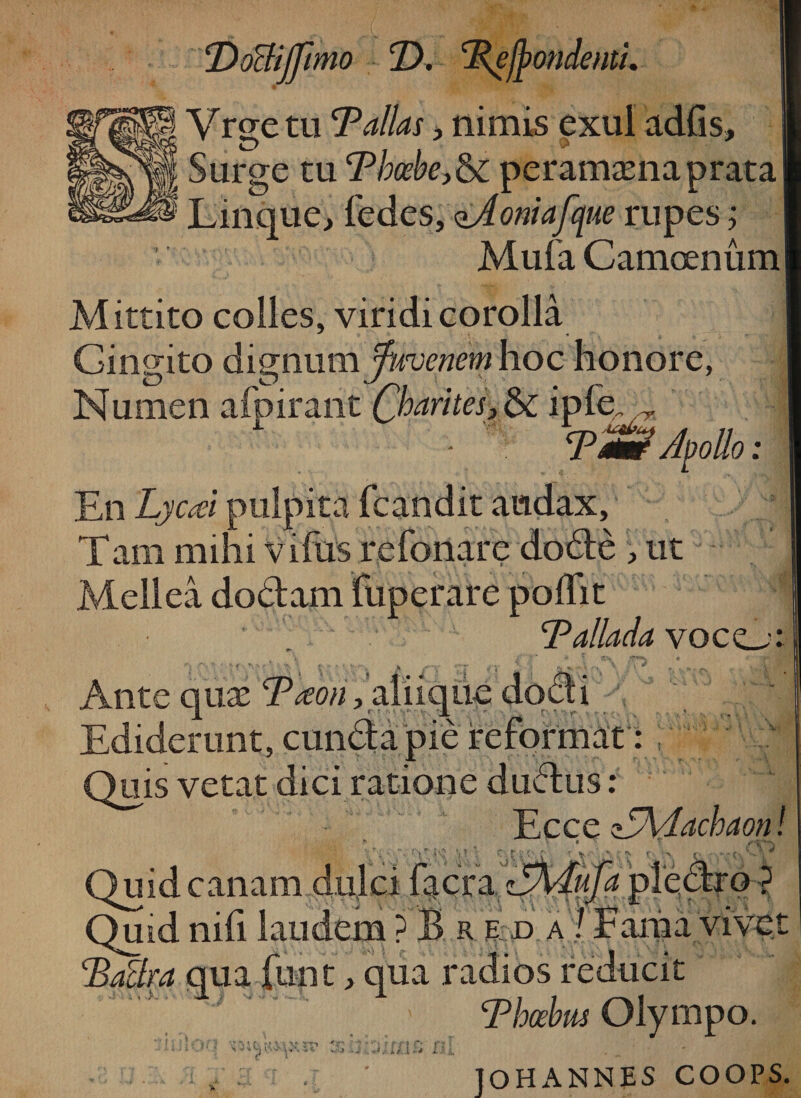 Doctiſſimo D. Reſpondenti.
SVrge tu Pallas, nimis exul adſis,
Surge tu Phœbe, & peramæna prata
Linque, ſedes, Aoniaſque rupes;
Muſa Camœnûm
Mittito colles, viridi corollâ
Cingito dignum Juvenem hoc honore,
Numen aſpirant Charites, & ipſe
Apollo:
En Lycæi pulpita ſcandit audax,
Tam mihi viſus reſonare doctè, ut
Melleâ doctam ſuperare poſſit
Pallada voce:
Ante quæ Pæon, aliique docti
Ediderunt, cuncta piè reformat:
Quis vetat dici ratione ductus:
Ecce Machaon!
Quid canam dulci ſacra Muſa plectro?
Quid niſi laudem? BREDA! Fama vivet
Bactra qua ſunt, qua radios reducit
Phœbus Olympo.
JOHANNES COOPS.